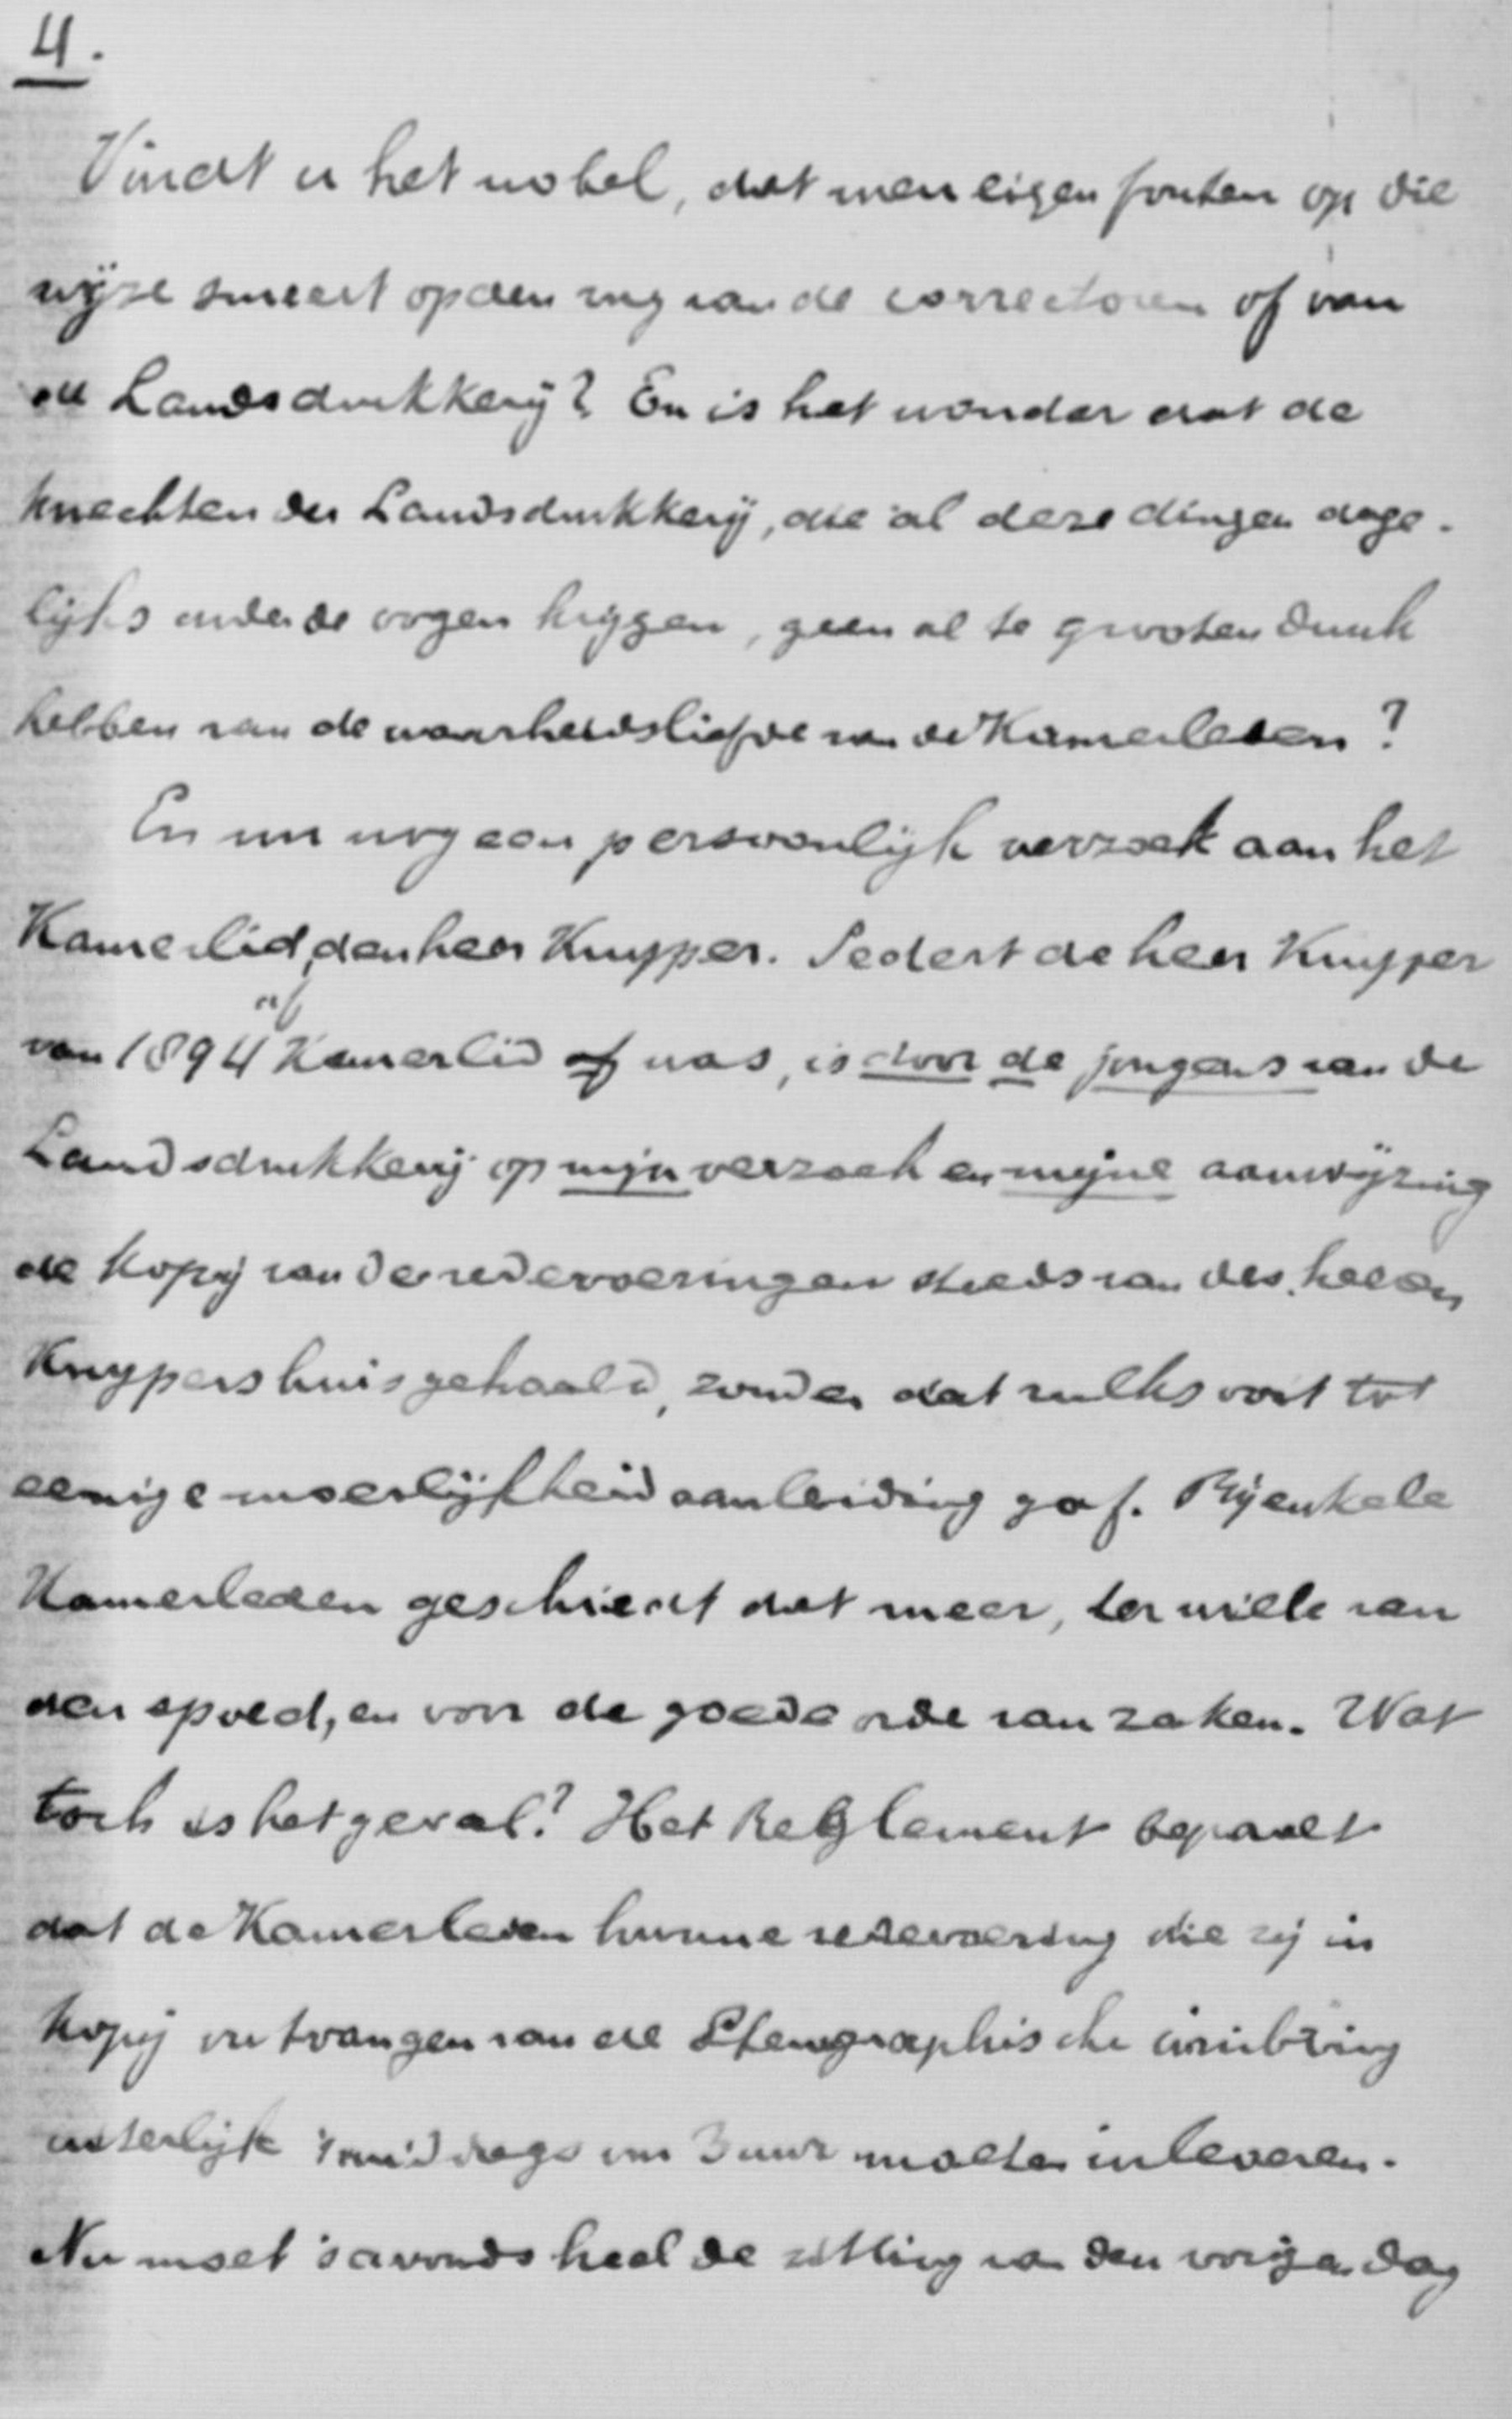 4.
Vindt u het nobel, dat men eigen fouten op die
wijze smeert op den rug van de correctoren of van
de Landsdrukkerij? En is het wonder dat de
knechten der Landsdrukkerij, die al deze dingen dage-
lijks onder de oogen krijgen, geen al te grooten dunk
hebben van de waarheidsliefde van de Kamerleden?
En nu nog een persoonlijk verzoek aan het
Kamerlid, den heer Kuyper. Sedert de heer Kuyper
van 1894 af Kamerlid af was, is door de jongens van de
Landsdrukkerij op mijn verzoek en mijne aanwijzing
de kopij van de redevoeringen steeds van des heeren
Kuypers huis gehaald, zonder dat zulks ooit tot
eenige moeilijkheid aanleiding gaf. Bij enkele
Kamerleden geschiedt dat meer, ter wille van
den spoed, en voor de goede orde van zaken. Wat
toch is het geval? Het Reglement bepaalt
dat de Kamerleden hunne redevoering die zij in
kopij ontvangen van de Stenographische inrichting
uiterlijk 's middags om 3 uur moeten inleveren.
Nu moet 's avonds heel de zitting van den vorigen dag